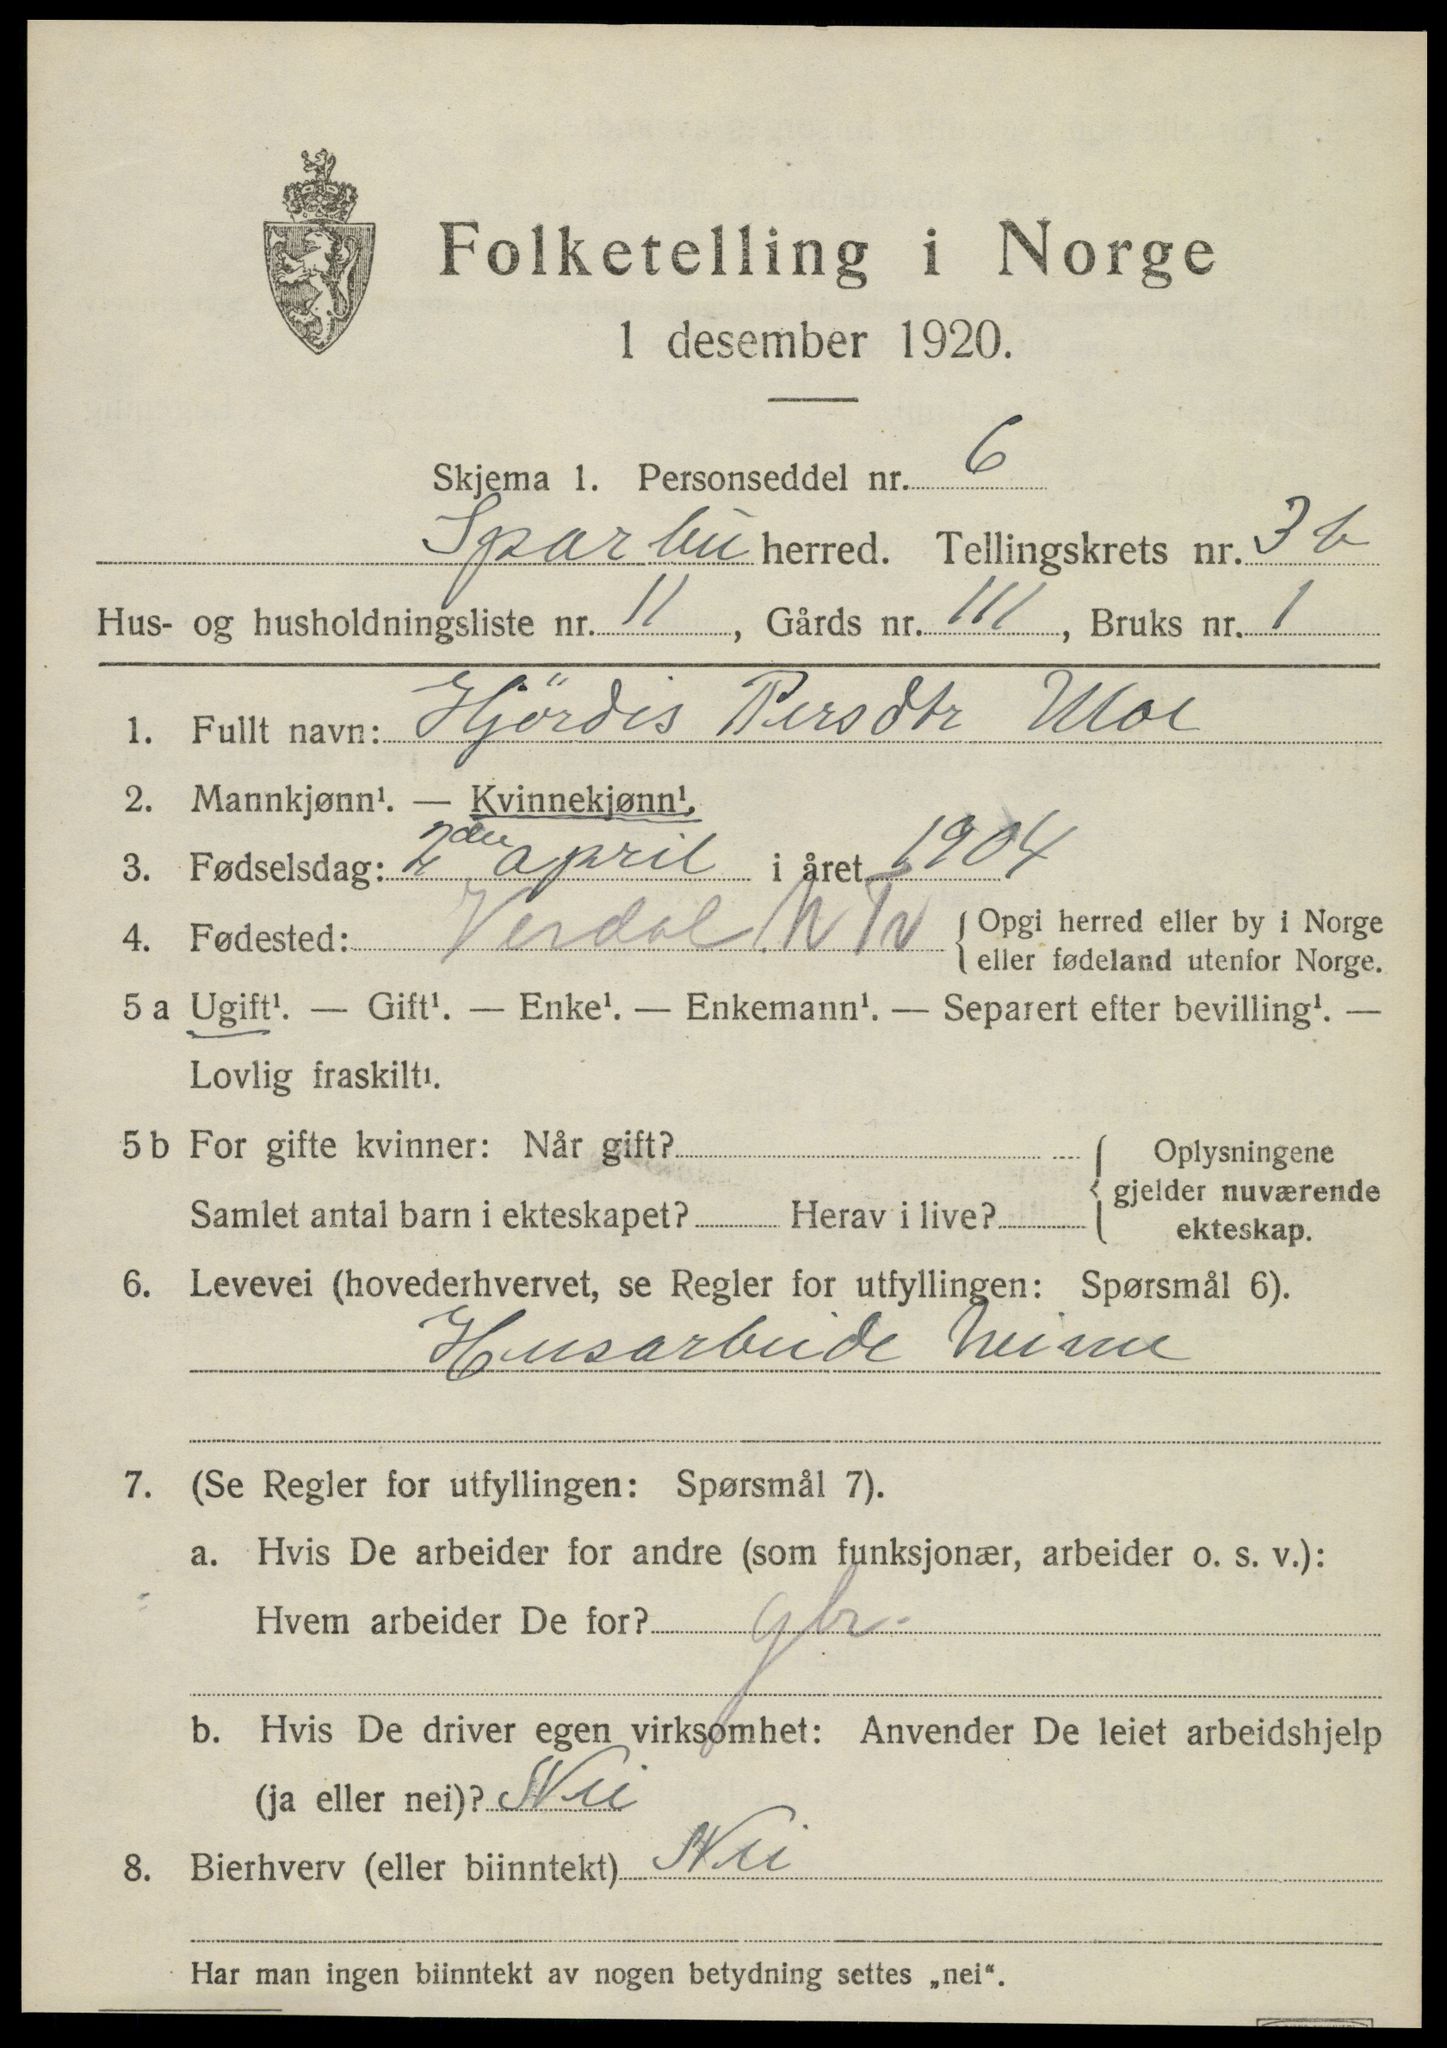 Folketelling i Norge
1 desember 1920.
Skjema 1. Personseddel nr. 6
Sparbu herred. Tellingskrets nr. 3 b
Hus- og husholdningsliste nr. 11, Gårds nr. 111, Bruks nr. 1
1. Fullt navn: Hjördis Persdtr Moe
2. Mannkjønn¹. — Kvinnekjønn¹.
3. Fødselsdag: 2den april i året 1904
4. Fødested: Verdal N Tr {Opgi herred eller by i Norge
eller fødeland utenfor Norge.
5 a Ugift¹. — Gift¹. — Enke¹. — Enkemann¹. — Separert efter bevilling¹. —
Lovlig fraskilt¹.
5 b For gifte kvinner: Når gift? { Oplysningene
gjelder nuværende
Samlet antal barn i ekteskapet? Herav i live? ekteskap.
6. Levevei (hovederhvervet, se Regler for utfyllingen: Spørsmål 6).
Husarbeide heime
7. (Se Regler for utfyllingen: Spørsmål 7).
a. Hvis De arbeider for andre (som funksjonær, arbeider o. s. v.):
Hvem arbeider De for? gbr.
b. Hvis De driver egen virksomhet: Anvender De leiet arbeidshjelp
(ja eller nei)? Nei
8. Bierhverv (eller biinntekt) Nei
Har man ingen biinntekt av nogen betydning settes „nei“.